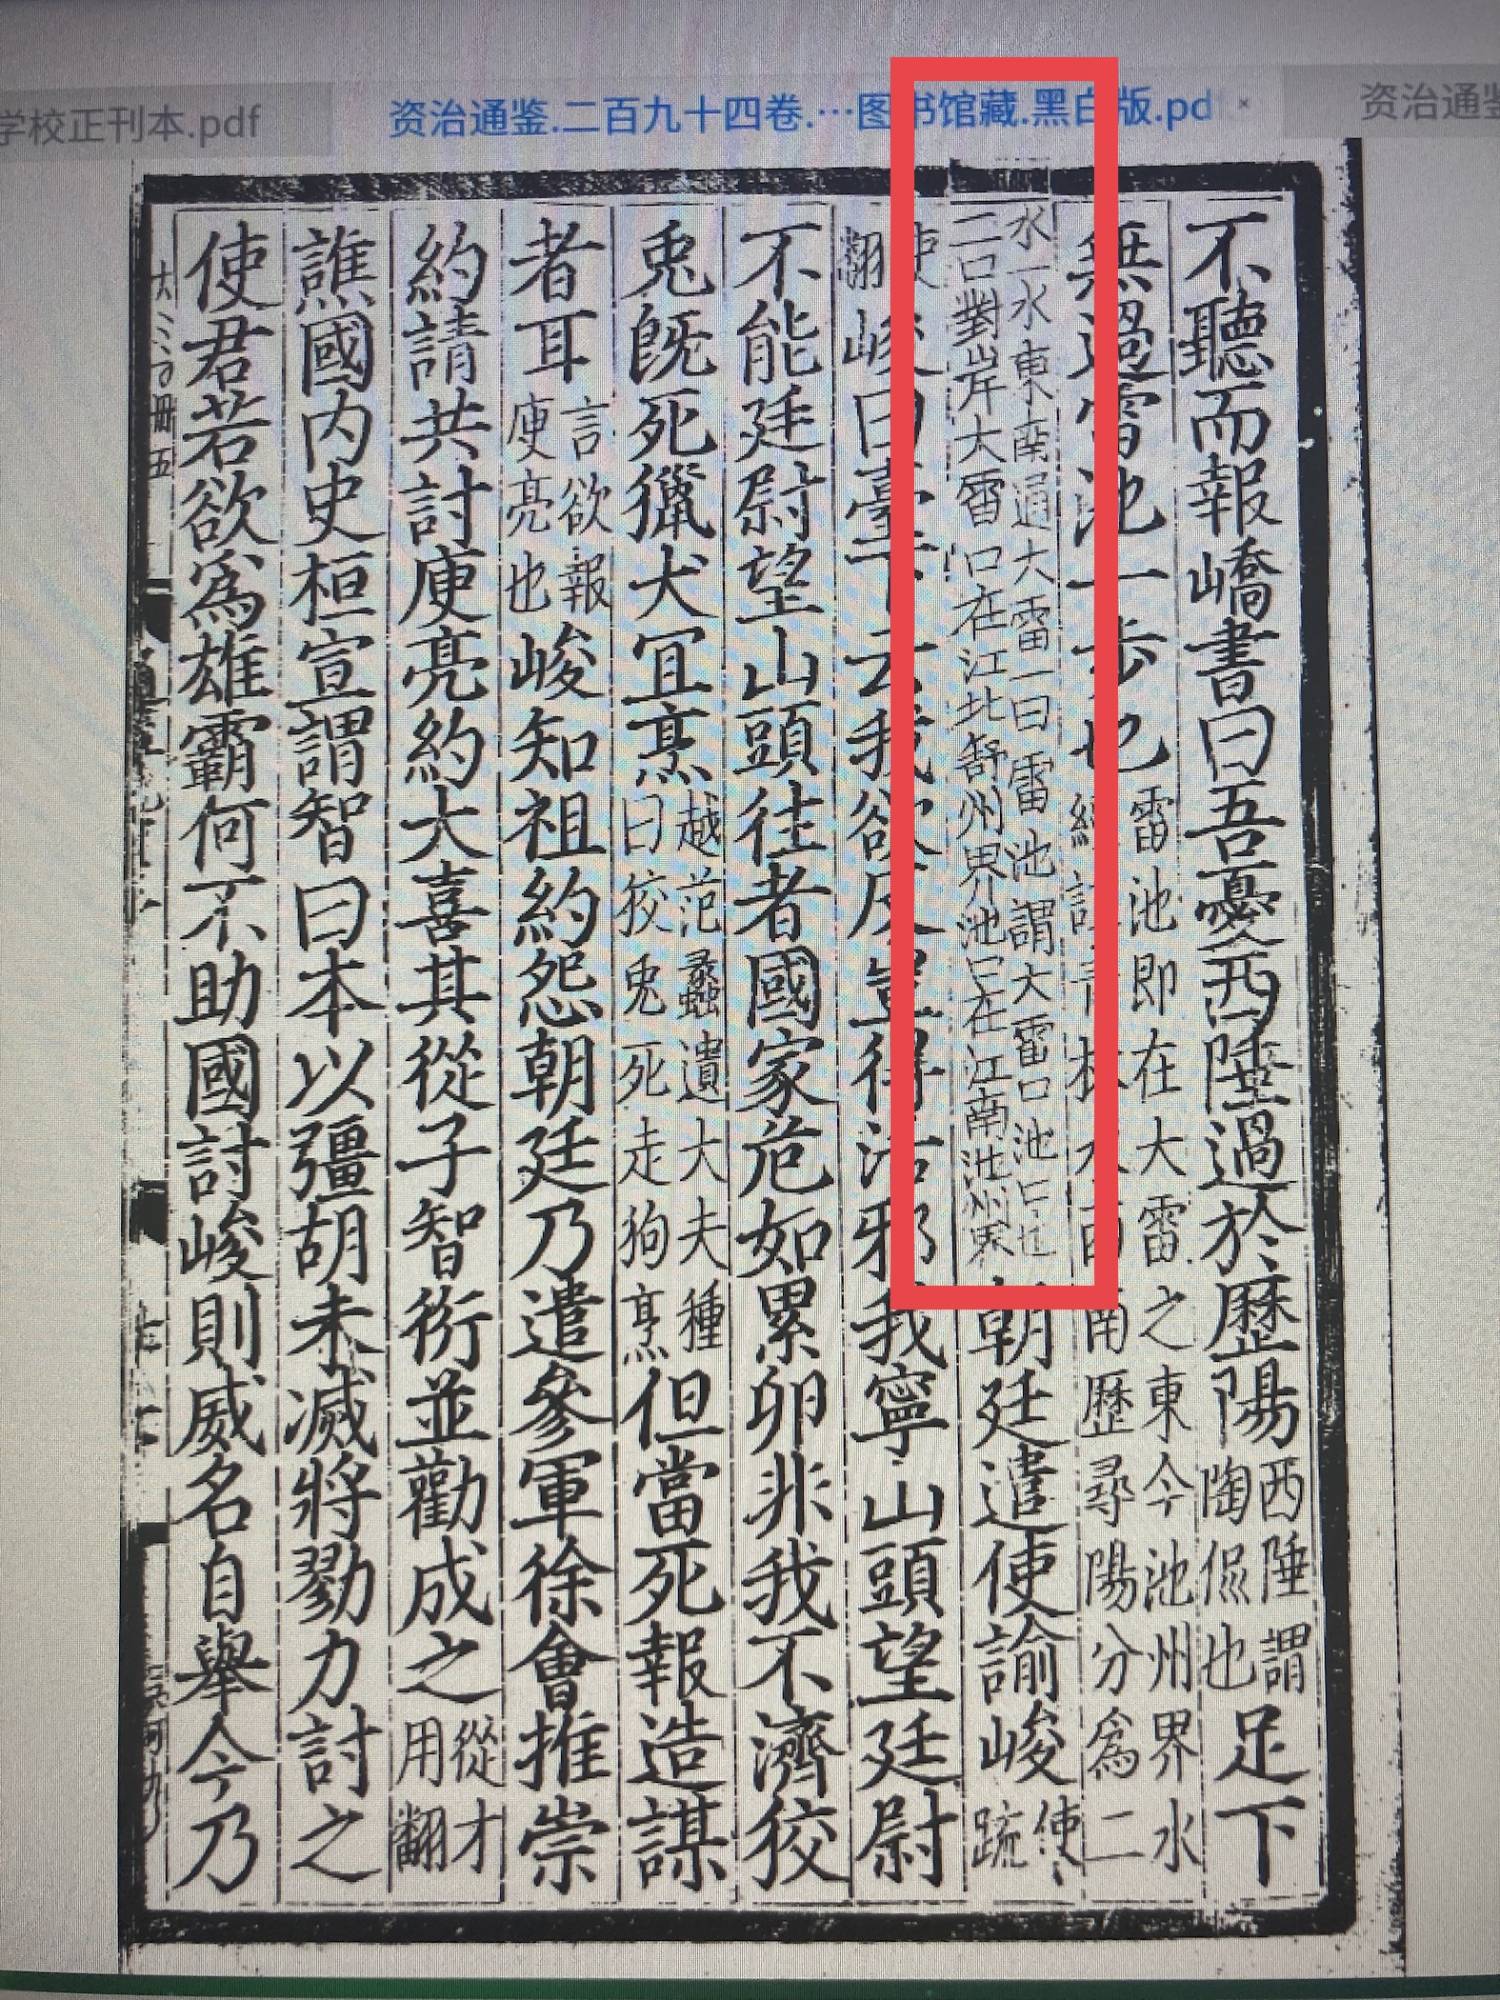 学校正刊本.pdf
资治通鉴.二百九十四卷.…图书馆藏.黑白版.pd ×
资治通鉴
不聽而報嶠書曰吾憂西陲過於歷陽西陲謂陶侃也足下
無過雷池一步也雷池即在大雷之東今池州界水經註青林水西南歷尋陽分為二
水一水東南通大雷一曰雷池謂大雷口池口也二口對岸大雷口在江北舒州界池口在江南池州界朝廷遣使諭峻使疏
使翻峻曰臺下云我欲反豈得活邪我寧山頭望廷尉
不能廷尉望山頭往者國家危如累卵非我不濟狡
兎旣死獵犬宜烹越范蠡遺大夫種曰狡兎死走狗烹但當死報造謀
者耳言欲報庾亮也峻知祖約怨朝廷乃遣參軍徐會推崇
約請共討庾亮約大喜其從子智衍並勸成之從才用翻
譙國内史桓宣謂智曰本以彊胡未滅將勠力討之
使君若欲爲雄霸何不助國討峻則威名自舉今乃